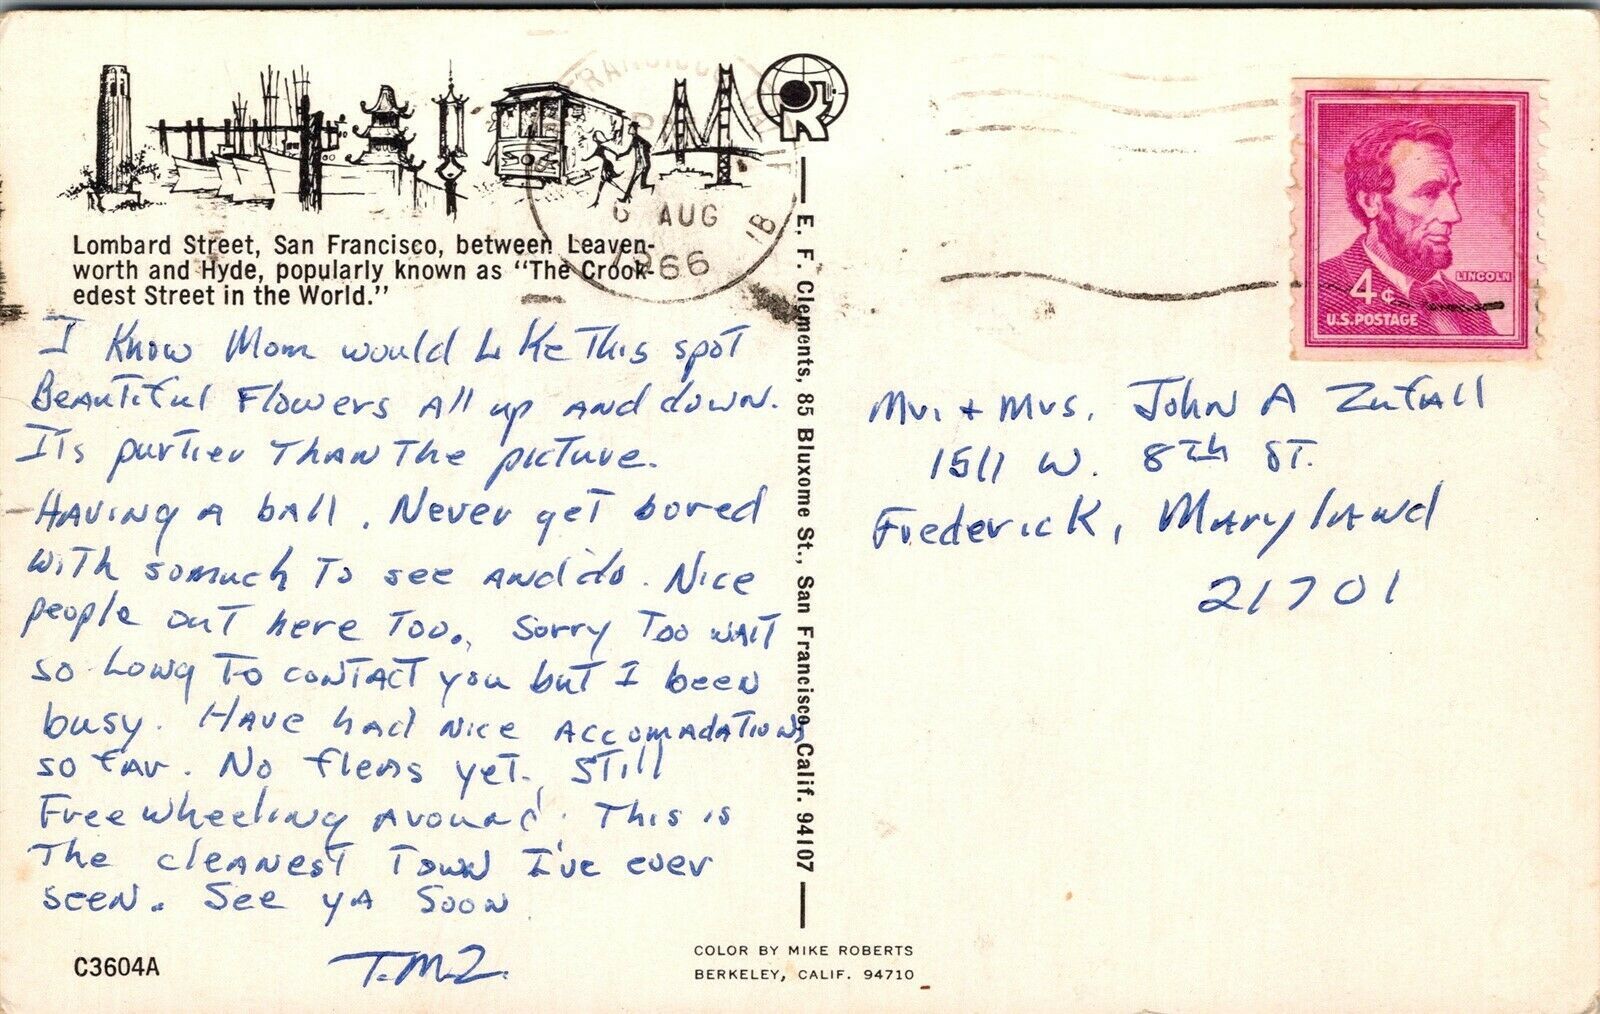 Lombard Street, San Francisco, between Leaven-
worth and Hyde, popularly known as "The Crook-
edest Street in the World."
I Know Mom would Like This spot
Beautiful Flowers All up and down.
Its purtier Than The picture.
Having a ball. Never get bored
with somuch To see and do. Nice
people out here Too. Sorry Too wait
so Long To contact you but I been
busy. Have had Nice Accomadations
so far. No fleas yet. Still
Free wheeling around. This is
The cleanest Town I've ever
seen. See ya Soon
T.M.Z.
C3604A
FRANCISCO
PM
AUG
1966
1B
E. F. Clements, 85 Bluxome St., San Francisco, Calif. 94107
COLOR BY MIKE ROBERTS
BERKELEY, CALIF. 94710
LINCOLN
4¢
U.S. POSTAGE
Mr. + Mrs. John A Zufall
1511 W. 8th St.
Frederick, Maryland
21701